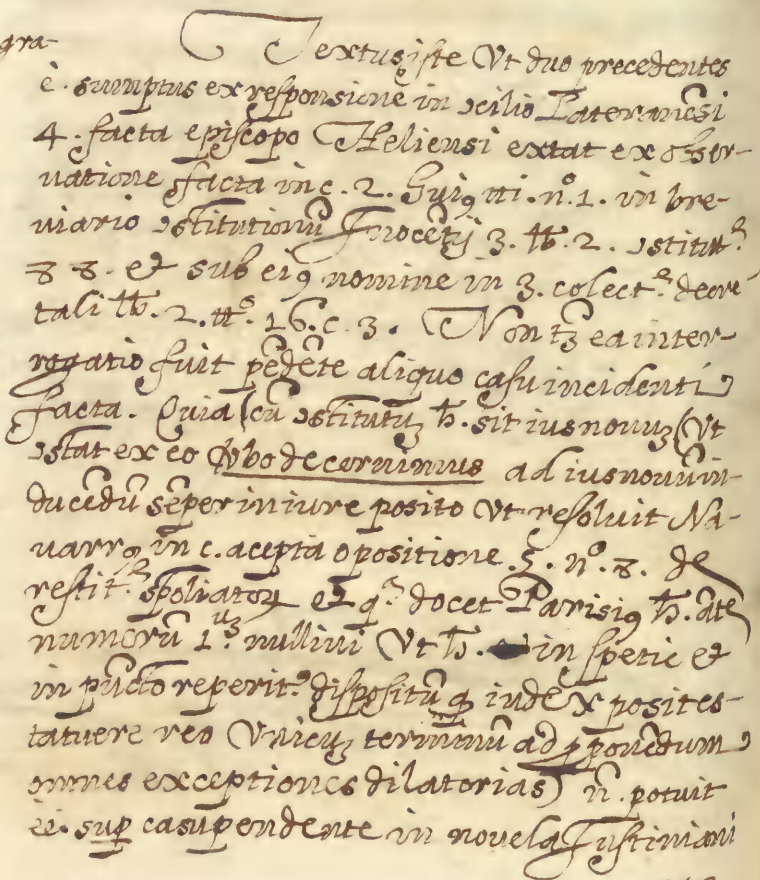 gra-
Textus iste Vt duo precedentes
é. sumptus ex responsione in ɔcilio Lateranẽsi
4. facta episcopo Heliensi extat ex obser-
uatione facta in c. 2. huiꝯ tti. nº. 1. in bre-
uiario ɔstitutionũ Inocẽtij 3. ɫb. 2. ɔstitut.ᵉ
88. et sub eiꝯ nomine in 3. colect.ᵉ decre
tali ɫb. 2. tt.º 16. c. 3. Non tꝫ ea inter-
rogatio fuit pẽdẽte aliquo casu incidenti
facta. Quia (cũ ɔstitutuꝫ ħ. sit ius nouuꝫ (Vt
ɔstat ex eo Vbo decernimus ad ius nouũ in-
ducẽdũ sẽper in iure posito Vt resoluit Na-
uarrꝯ in c. acepta opositione. §. nº. 8. de
restit.ᵉ spoliatoꝝ et q.ᵉ docet Parisiꝯ ħ. ãte
numerũ 1.ᵘꝫ nullini Vt ħ. in spetie et
in pũcto reperit.ᵉ dispositũ ꝙ iudex posit es-
tatuere reo Vnicuꝫ terminũ ad ꝓponẽdum
omnes exceptiones dilatorias) ñ. potuit
ẽe. sup casu pendente in novela Justiniani